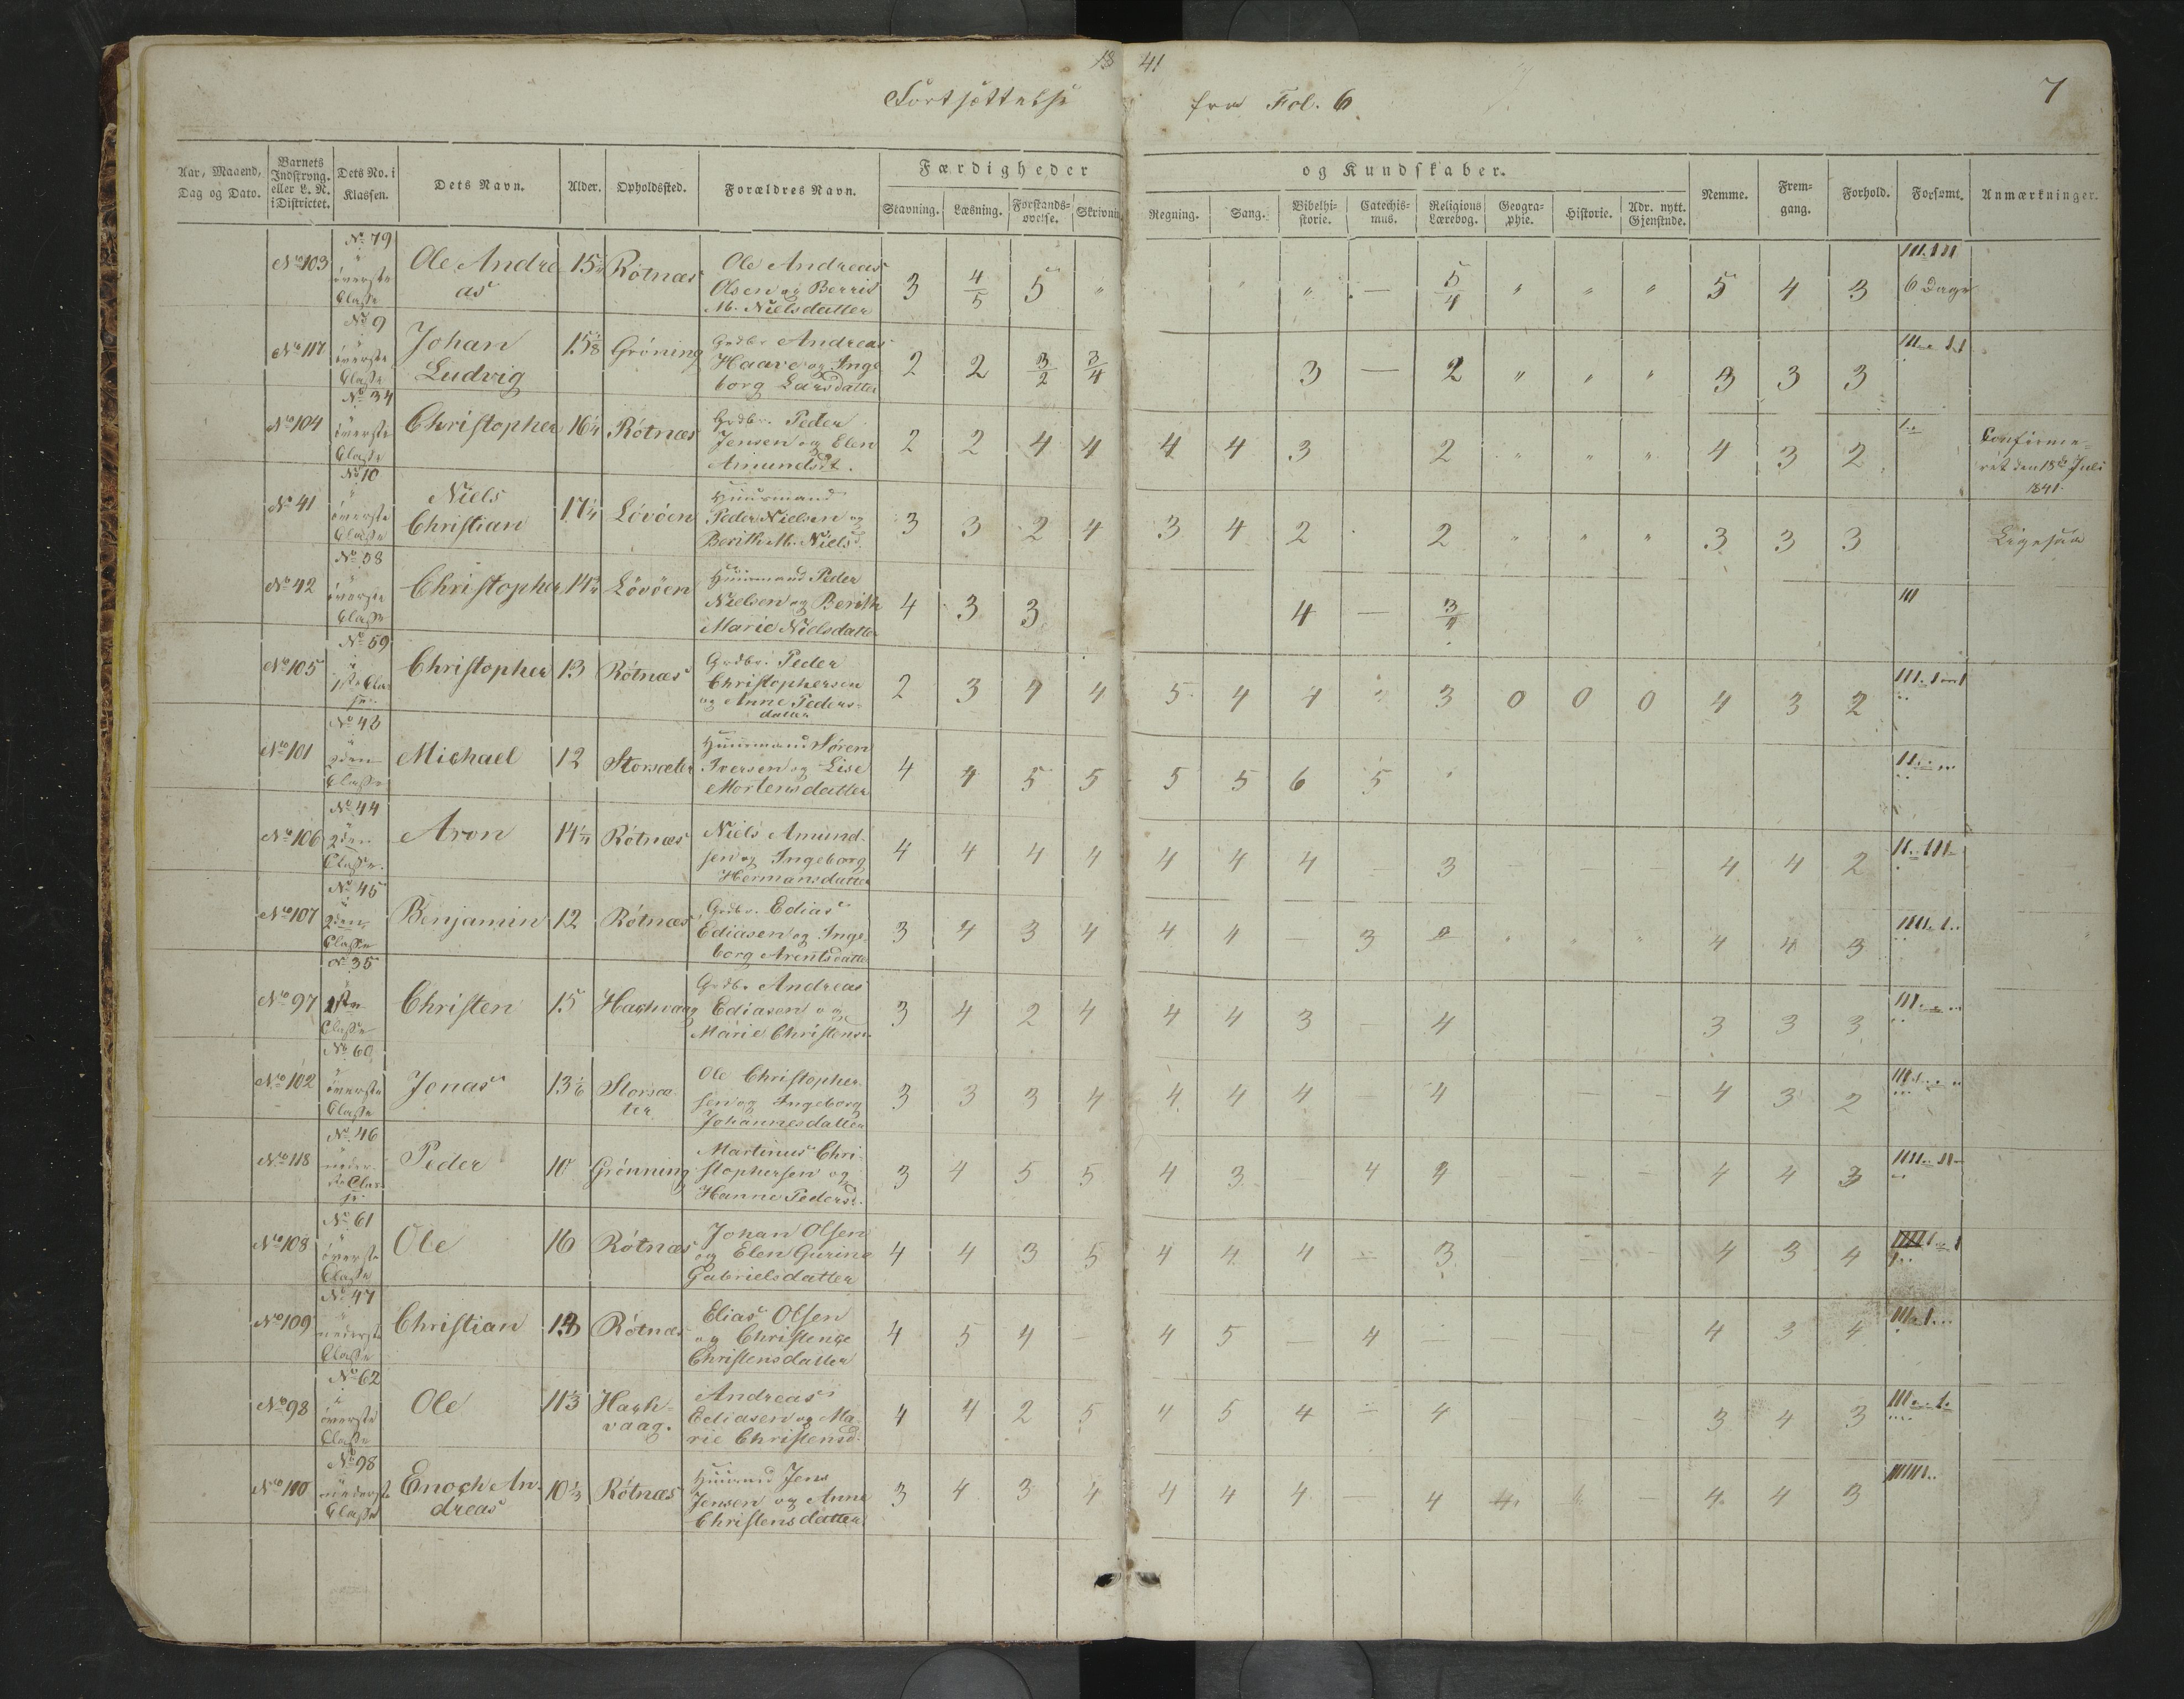 18 41
Fortsættelse fra Fol. 6
7
Aar, Maaned, Dag og Dato. Barnets Indskrvng. eller L. N. i Districtet. Dets No. i Klassen. Dets Navn. Alder. Opholdssted. Forældres Navn. Færdigheder og Kundskaber. Nemme. Fremgang. Forhold. Forsømt. Anmærkninger.
Stavning. Læsning. Forstands-øvelse. Skrivning. Regning. Sang. Bibelhi-storie. Catechis-mus. Religions Lærebog. Geogra-phie. Historie. Adr. nytt. Gjenstnde.
No 103 No 79 i överste Classe Ole Andreas 15 Rötnæs Ole Andreas Olsen og Berris M. Nielsdatter 3 4/5 5 " " " — 5/4 " " " 5 4 3 6 Dage
No 117 No 9 i överste Classe Johan Ludvig 15 1/8 Gröning Grdbr Andreas Haave og Ingeborg Larsdatter 2 2 3/2 3/4 3 — 2 " " " 3 3 3
No 104 No 34 i överste Classe Christopher 16 1/4 Rötnæs Grdbr. Peder Jensen og Elen Amundsdt. 2 2 4 4 4 4 3 2 " " " 4 3 2 Confirmeret den 18de Juli 1841.
No 41 No 10 i överste Classe Niels Christian 17 1/4 Lövöen Huusmand Peder Nielsen og Berith M. Nielsd. 3 3 2 4 3 4 2 2 " " " 3 3 3 Ligesaa
No 42 No 58 i överste Classe Christopher 14 Lövöen Huusmand Peder Nielsen og Berith Marie Nielsdatter 4 3 3 4 — 3/4
No 105 No 59 i 1ste Classe Christopher 13 Rötnæs Grdbr. Peder Christophersen og Anne Pedersdatter 2 3 4 4 5 4 4 3 0 0 0 4 3 2
No 101 No 43 i 2den Classe Michael 12 Storsæter Huusmand Sören Iversen og Lise Mortensdatter 4 4 5 5 5 5 6 5
No 106 No 44 i 2den Classe. Aron 14 1/4 Rötnæs Niels Amundsen og Ingeborg Hermansdatter 4 4 4 4 4 4 4 — 3 — — — 4 4 2
No 107 No 45 i 2den Classe Benjamin 12 Rötnæs Grdbr. Edias Ediasen og Ingeborg Arentsdatter 3 4 3 4 4 4 — 3 " " " 4 4 3
No 97 No 35 i 1ste Classe Christen 15 Hachvaag Grdbr Andreas Ediasen og Marie Christensd. 3 4 2 4 4 4 3 — 4 3 3 3
No 102 No 60 i överste Classe Jonas 13 1/6 Storsæter Ole Christophersen og Ingeborg Johannesdatter 3 3 3 4 4 4 4 — 4 — — — 4 3 2
No 118 No 46 i nederste Classe Peder 10 Grönning Martinus Christophersen og Hanne Pedersd. 3 4 5 5 4 3 — 4 4 — — — 4 4 3
No 108 No 61 i överste Classe Ole 16 Rötnæs Johan Olsen og Elen Gurina Gabrielsdatter 4 4 3 5 4 4 4 — 3 4 3 4
No 109 No 47 i nederste Classe Christian 13 Rötnæs Elias Olsen og Christenge Christensdatter 4 5 4 — 4 5 — 4 — — — — 4 3 4
No 98 No 62 i överste Classe Ole 11 1/3 Hachvaag. Andreas Ediasen og Marie Christensd. 4 4 2 5 4 5 4 — 4 — — — 3 4 3
No 110 No 98 i nederste Classe Enoch Andreas 10 1/3 Rötnæs Huusmd Jens Jensen og Anne Christensdatter 3 4 3 4 4 4 4 — 4 4 — 4 4 3